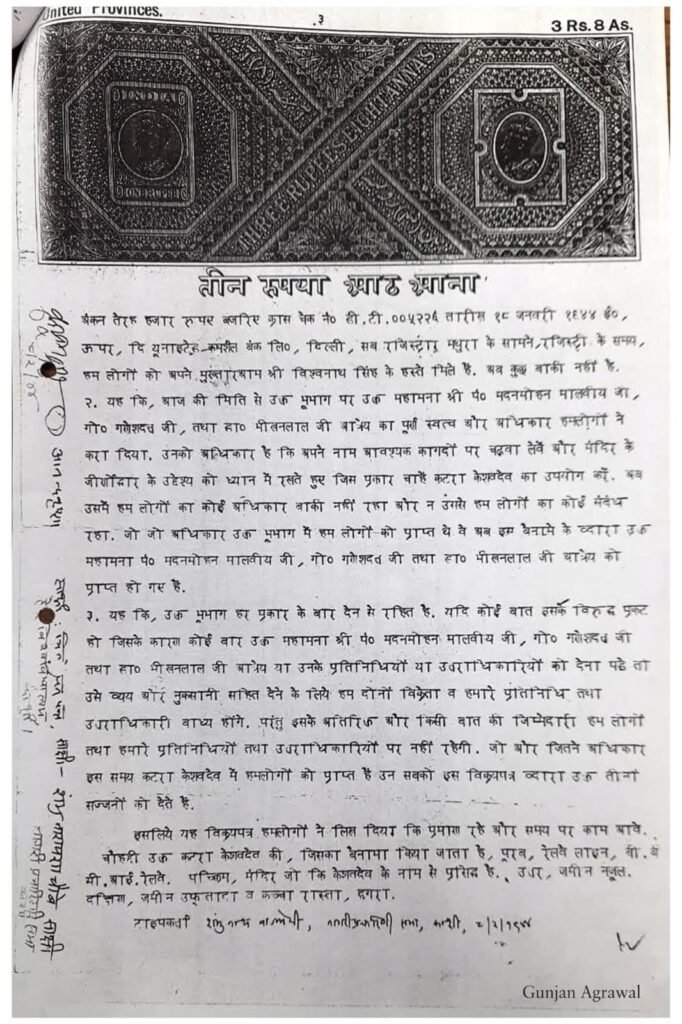 United Provinces.
३
3 Rs. 8 As.
INDIA
ONE RUPEE
THREE RUPEES EIGHT ANNAS
तीन रुपया आठ आना
बैंकन तेरह हजार रुपए बजरिए क्रास चेक नं० टी.टी.००५२२६ तारीख १८ जनवरी १९४४ ई०,
ऊपर, दि यूनाइटेड कमर्शल बंक लि०, दिल्ली, सब रजिस्ट्रार मथुरा के सामने,रजिस्ट्री के समय,
हम लोगों को अपने मुख्तारआम श्री विश्वनाथ सिंह के हस्ते मिले है. अब कुछ बाकी नहीं है.
२. यह कि, आज की मिति से उक्त भूभाग पर उक्त महामना श्री पं० मदनमोहन मालवीय जी,
गो० गणेशदत्त जी, तथा डा० भीखनलाल जी आत्रेय का पूर्ण स्वत्व और अधिकार हमलोगों ने
करा दिया. उनको अधिकार है कि अपने नाम आवश्यक कागदों पर चढ़वा लेवें और मंदिर के
जीर्णोद्धार के उद्देश्य को ध्यान में रखते हुए जिस प्रकार चाहें कटरा केशवदेव का उपयोग करें. अब
उसमें हम लोगों का कोई अधिकार बाकी नहीं रहा और न उससे हम लोगों का कोई संबंध
रहा. जो जो अधिकार उक्त भूभाग में हम लोगों को प्राप्त थे वे अब इस बैनामे के व्दारा उक्त
महामना पं० मदनमोहन मालवीय जी, गो० गणेशदत्त जी तथा डा० भीखनलाल जी आत्रेय को
प्राप्त हो गए हैं.
३. यह कि, उक्त भूभाग हर प्रकार के बार देन से रहित है. यदि कोई बात इसके विरुद्ध प्रकट
हो जिसके कारण कोई बार उक्त महामना श्री पं० मदनमोहन मालवीय जी, गो० गणेशदत्त जी
तथा डा० भीखनलाल जी आत्रेय या उनके प्रतिनिधियों या उत्तराधिकारियों को देना पड़े तो
उसे व्यय और नुक्सानी सहित देने के लिये हम दोनों विक्रेता व हमारे प्रतिनिधि तथा
उत्तराधिकारी बाध्य होंगे. परंतु इसके अतिरिक्त और किसी बात की जिम्मेदारी हम लोगों
तथा हमारे प्रतिनिधियों तथा उत्तराधिकारियों पर नहीं रहेगी. जो और जितने अधिकार
इस समय कटरा केशवदेव में हमलोगों को प्राप्त है उन सबको इस विक्रयपत्र व्दारा उक्त तीनों
सज्जनों को देते है.
इसलिये यह विक्रयपत्र हमलोगों ने लिख दिया कि प्रमाण रहे और समय पर काम आवे.
चौहद्दी उक्त कटरा केशवदेव की, जिसका बैनामा किया जाता है, पूरब, रेलवे लाइन, बी. बं
सी.आई.रेलवे. पच्छिम, मंदिर जो कि केशवदेव के नाम से प्रसिद्ध है. उत्तर, जमीन नजूल.
दक्षिण, जमीन उफ्तादा व कच्चा रास्ता, दगरा.
टाइपकर्ता शंभुनाथ वाजपेयी, नागरीप्रचारिणी सभा, काशी, ८/२/१९४४
Gunjan Agrawal